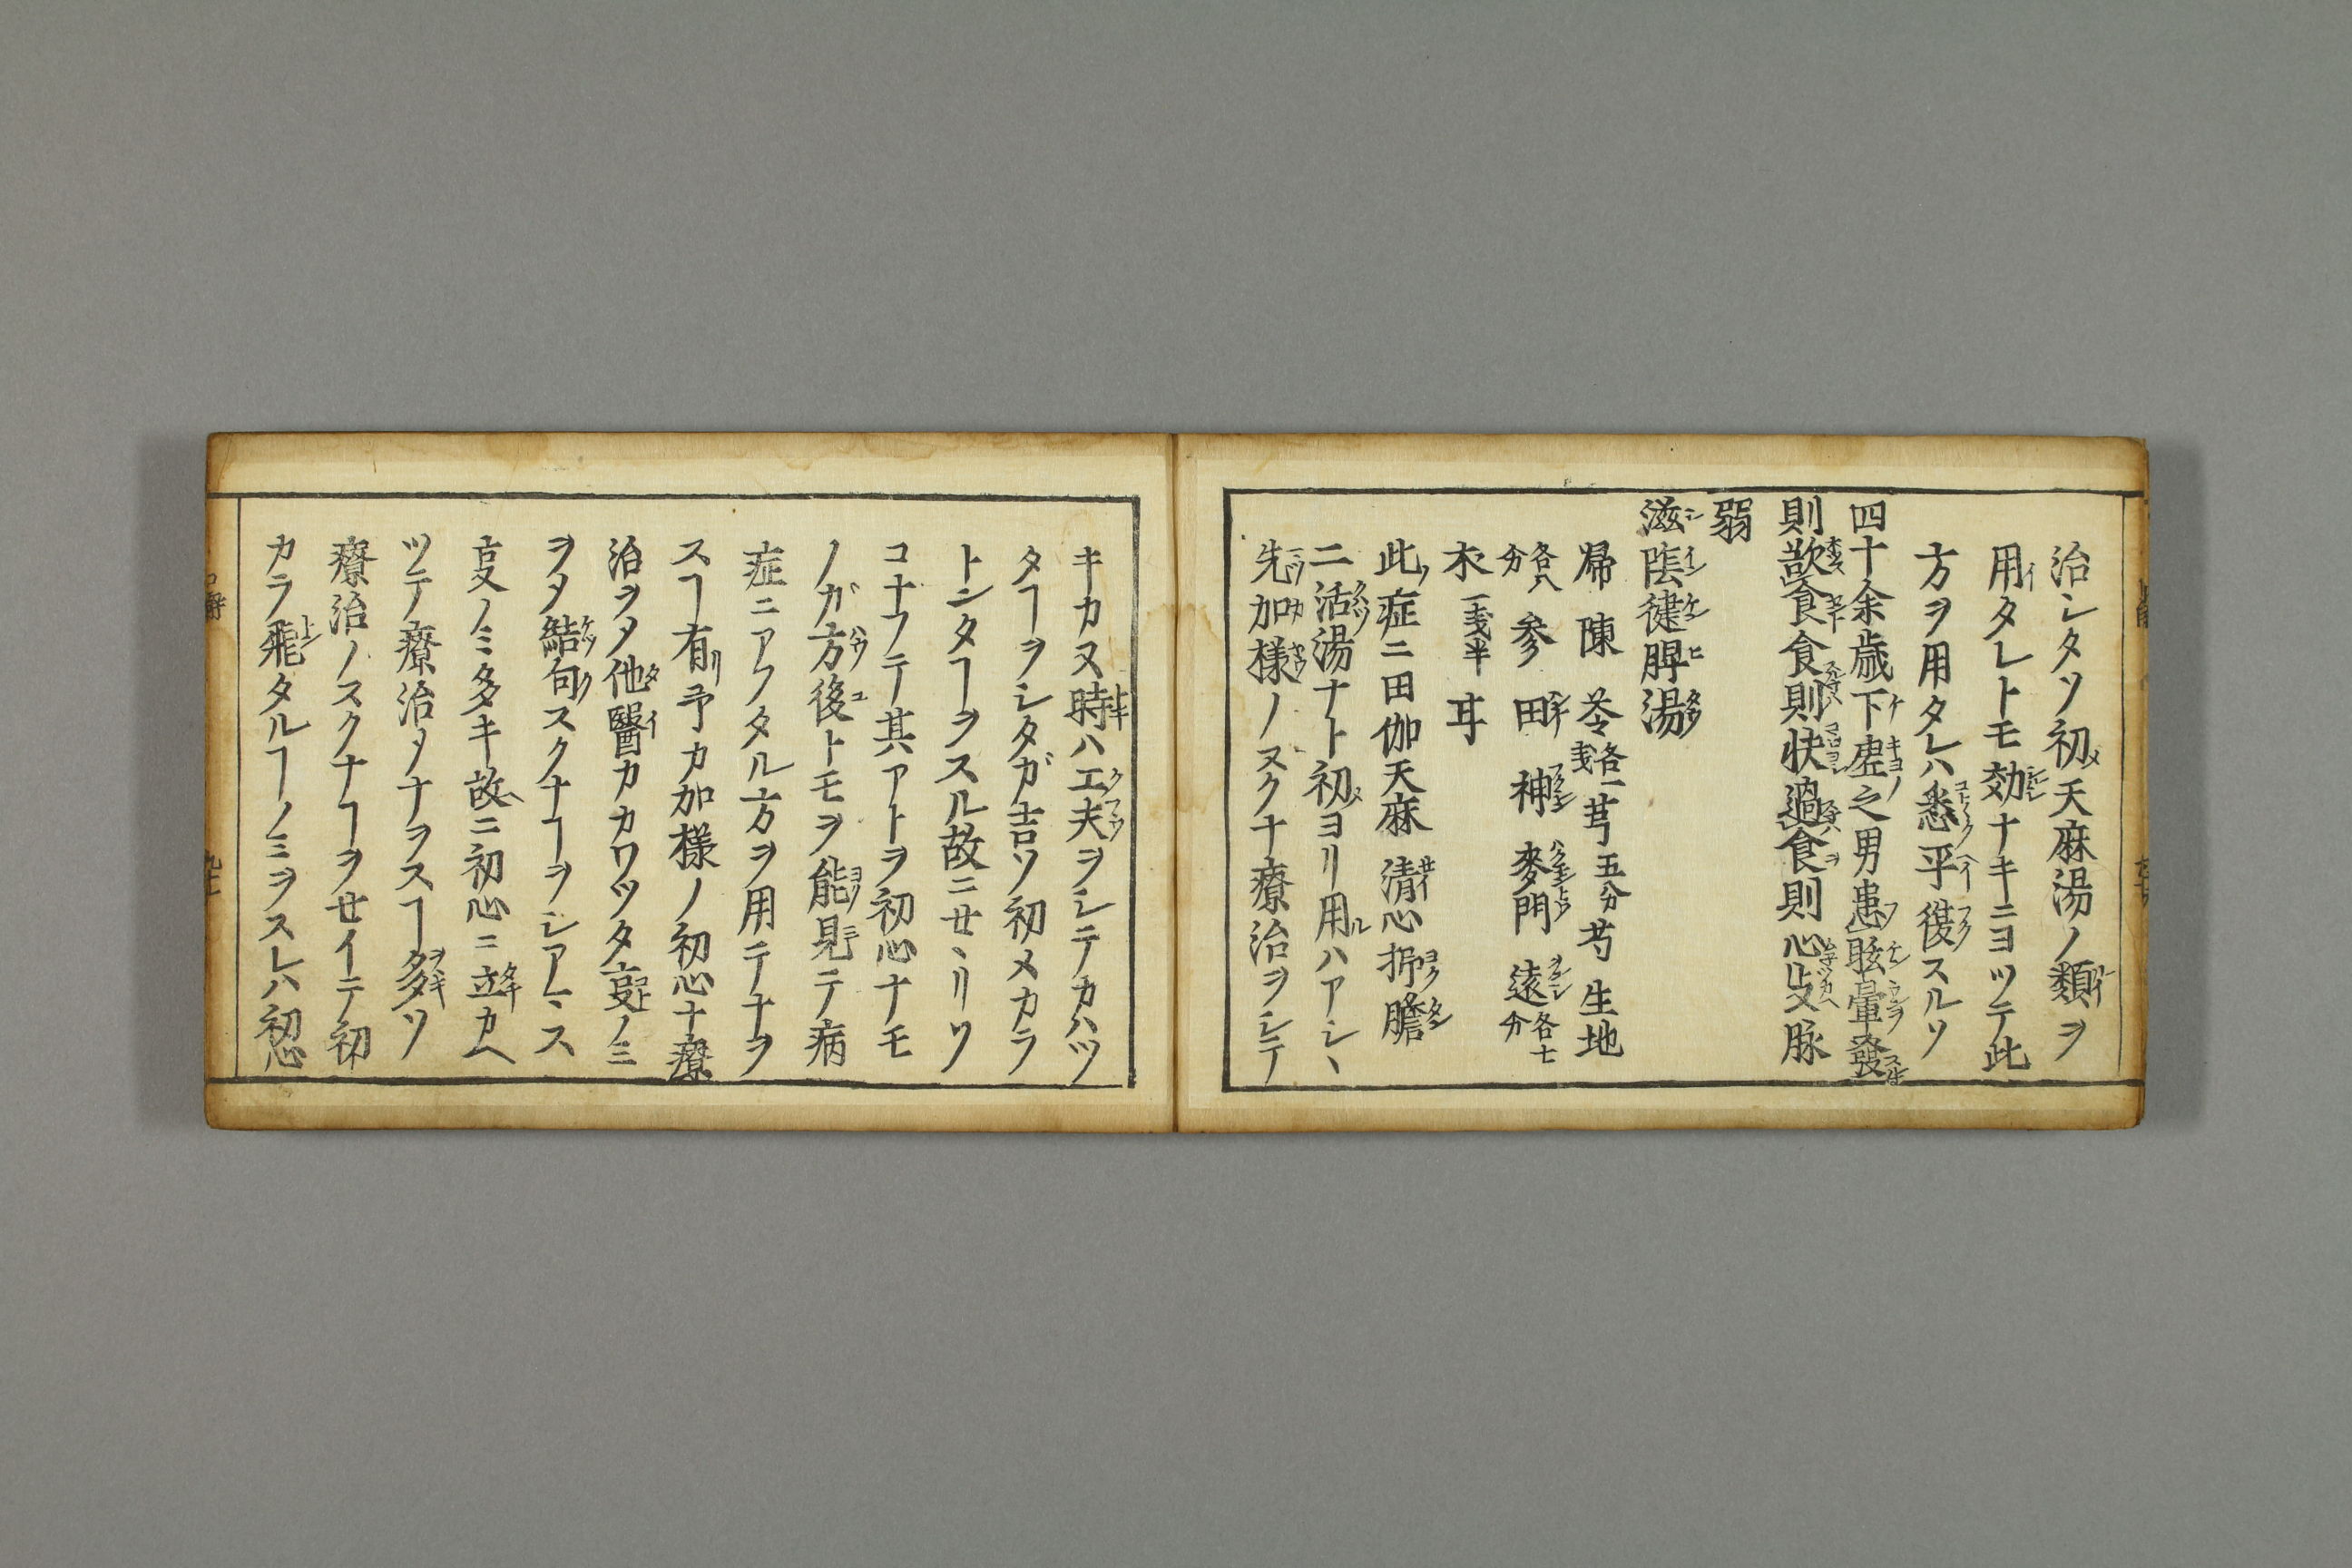 治シタソ初メ天麻湯ノ類ヲ
用タレトモ効ナキニヨツテ此
方ヲ用タレハ悉平復スルソ
四十余歳下虚之男患眩暈發
則欲食食則快過食則心脉
弱
滋陰健脾湯
帰 陳 苓各一戔 芎五分 芍 生地
各八分 参 田 神 麥門 遠各七分
朮一戔半 耳
此症ニ田伽天麻 清心抑膽
二活湯ナト初ヨリ用ハアシヽ
先加様ノスクナ療治ヲシテ
キカヌ時ハ工夫ヲシテカハツ
タヿヲシタガ吉ソ初メカラ
トンタヿヲスル故ニせヽリソ
コナフテ其アトヲ初心ナモ
ノガ方後トモヲ能見テ病
症ニアフタル方ヲ用テナヲ
スヿ有予カ加様ノ初心ナ療
治ヲメ他醫カカワツタ㕝ノミ
ヲメ結句スクナヿヲシアトヽス
㕝ノミ多キ故ニ初心ニ立カヘ
ツテ療治メナヲスヿ多ソ
療治ノスクナヿヲせイテ初
カラ飛タルヿノミヲスレハ初心